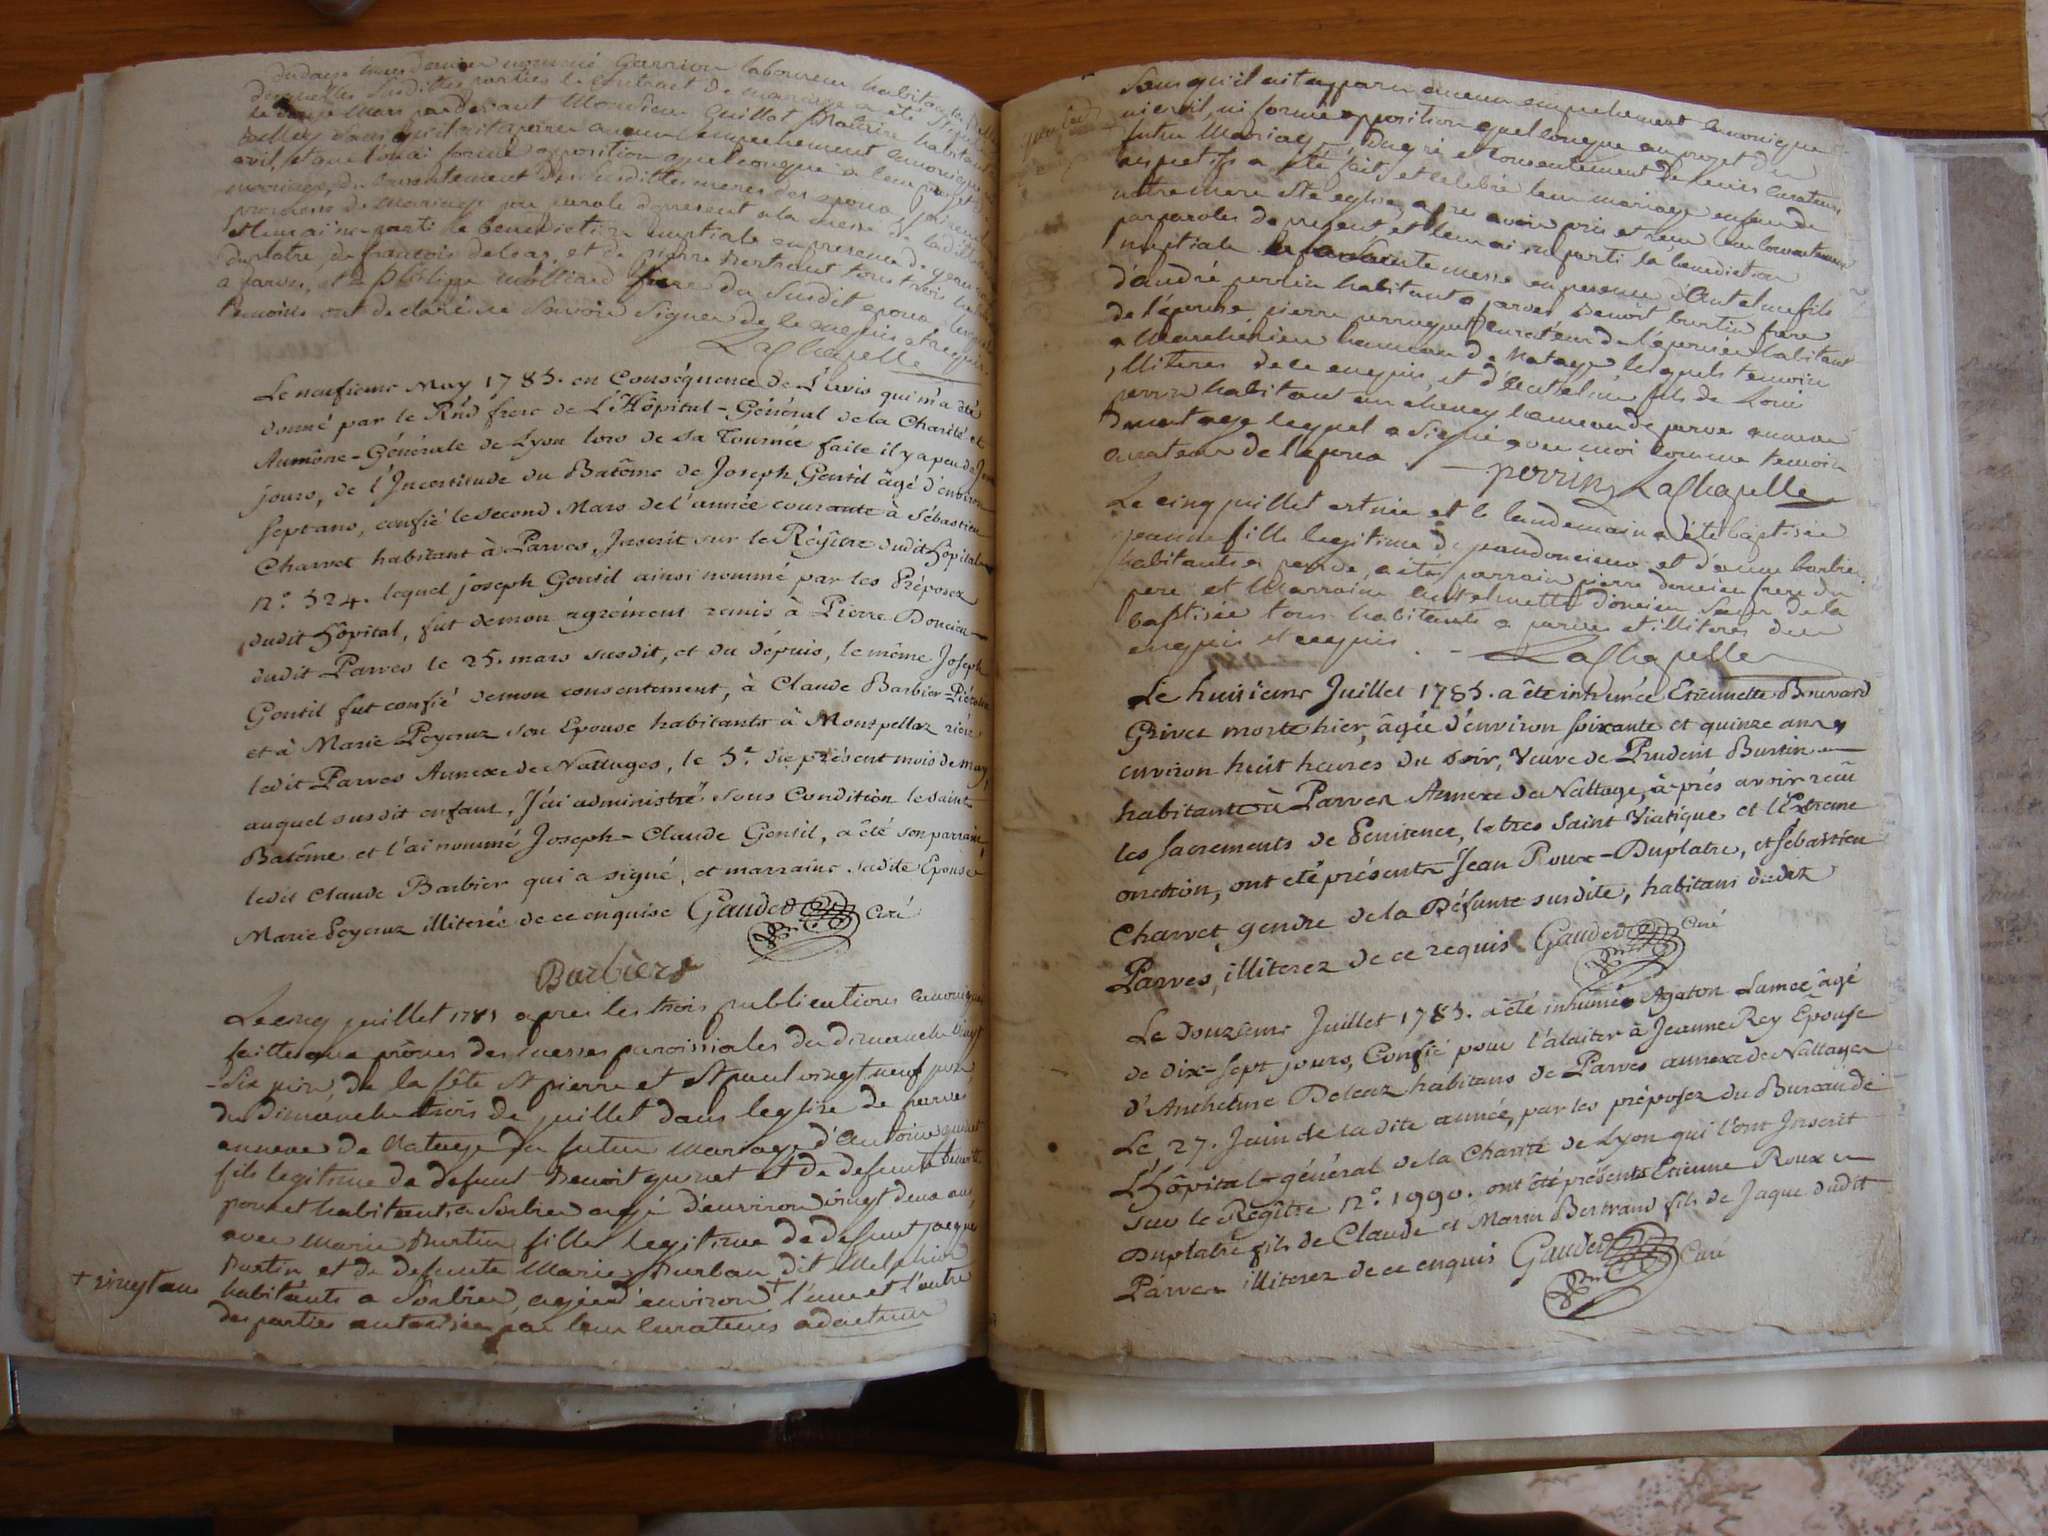 du douze mars dernier nommé Garrion laboureur habitant
desquelles susdittes parties le contract de mariage a été
le douze Mars par devant Monsieur Guillot Notaire habitant
Belley sans qu'il ait aparu aucun empechement canonique
civil, et aucun ai formé opposition quelconque a leur projet
mariage, du consentement des susdittes meres des epoux, j'ai
promesse de Mariage par parole de present a la messe de laditte
et leur ai imparti la benediction nuptiale en presence de jean
duplatre, de francois delear, et de pierre Bertrand tous trois
a parves, et de philippe molliard frere du susdit epoux lesquels
temoins ont declaré ne savoir signer de ce enquis et requis
LaChapelle
Le neufieme May 1785. en Conséquence de L'Avis qui m'a été
donné par le Rnd frere de L'Hôpital-Général de la Charité et
Aumône-Générale de Lyon lors de sa Tournée faite il y a peu de
jours, de l'Incertitude du Batême de Joseph Gentil âgé d'environ
sept ans, confié le second Mars de l'année courante à Sébastien
Charvet habitant à Parves, Inscrit sur le Régître dudit hôpital
N.° 524. lequel joseph Gentil ainsi nommé par les Préposez
dudit hôpital, fut de mon agrément remis à Pierre Doncieu
dudit Parves le 25. mars susdit, et du dépuis, le même Joseph
Gentil fut confié de mon consentement, à Claude Barbier
et à Marie Peycruz son Epouse habitants à Montpellaz rière
ledit Parves Annexe de Nattages, le 5.e du présent mois de may,
auquel susdit enfant, J'ai administré sous Condition le saint
Batême et l'ai nommé Joseph-Claude Gentil, a été son parrain,
ledit Claude Barbier qui a signé, et marraine sadite Epouse
Marie Peycruz illiterée de ce enquise Gaudet Curé
Barbiers
Le cinq juillet 1785 apres les trois publications canoniques
faittes aux prônes des messes paroissiales du dimanche vingt
-six juin, de la fête St pierre et St paul vingt neuf juin,
du dimanche trois de juillet dans leglise de parves
annexe de Natage du futur mariage d'antoine
fils legitime de defunt Benoit et de defunte benoite
ponet habitant a Sorbier agé d'environ vingt deux ans,
avec Marie Burtin fille legitime de defunt jacque
Burtin et de defunte Marie Burban dit Melphion
+ vingt ans habitants a Sorbier, agée d'environ + l'une et l'autre
des parties autorisées par leur curateurs adactum
sans qu'il ait apparu aucun empechement canonique
ni civil, ni formé opposition quelconque au projet du
futur Mariage, du gré et consentement de leurs curateurs
respectifs a été fait et celebré leur mariage en face de
notre mere Ste eglise, apres avoir pris et recu leur consentement
par paroles de present, et leur ai imparti la benediction
nuptiale a la sainte messe en presence d'Antelme fils
d'andré perrin habitant a parves Benoit burtin frere
de l'épouse, pierre curateur de l'épouse habitant
a Marchenieu hameau de Natage lesquels temoins
illiteres de ce enquis, et d'Antelme fils de Louis
perrin habitant au cheney hameau de parves annexe
de natage lequel a signé avec moi comme temoin
curateur de l'epoux perrin LaChapelle
Le cinq juillet est née et le landemain a été baptisée
jeanne fille legitime de jean doncieux et d'anne barbier
habitants a parves, a été parrain pierre doncieu frere du
pere et Marraine antelmette doncieu sœur de la
baptisée tous habitants a parves et illiteres de ce
enquis et requis. LaChapelle
Le huitieme Juillet 1785. a été inhumée Etiennette Bouvard
Grivet morte hier, âgée d'environ soixante et quinze ans,
environ huit heures du soir, Veuve de Prudent Burtin
habitante à Parves Annexe de Nattage, après avoir reçû
les sacrements de Pénitence, le tres Saint Viatique et l'Extreme
onction, ont été présents Jean Roux-Duplatre, et Sébastien
Charvet, gendre de la Défunte susdite, habitans dudit
Parves, illiterez de ce requis Gaudet Curé
Le Douzieme Juillet 1785. a été inhumé Agaton Lamee âgé
de dix-sept jours, Confié pour l'alaiter à Jeanne Rey Epouse
d'Anthelme Deleaz habitans de Parves annexe de Nattages
Le 27. Juin de la dite année, par les préposez du Bureau de
L'hôpital-général de la Charité de Lyon qui l'ont Inscrit
sur le Regître N.° 1990. ont été présents Etienne Roux
Duplatre fils de Claude et Marin Bertrand fils de Jaque dudit
Parves illiterez de ce enquis Gaudet Curé